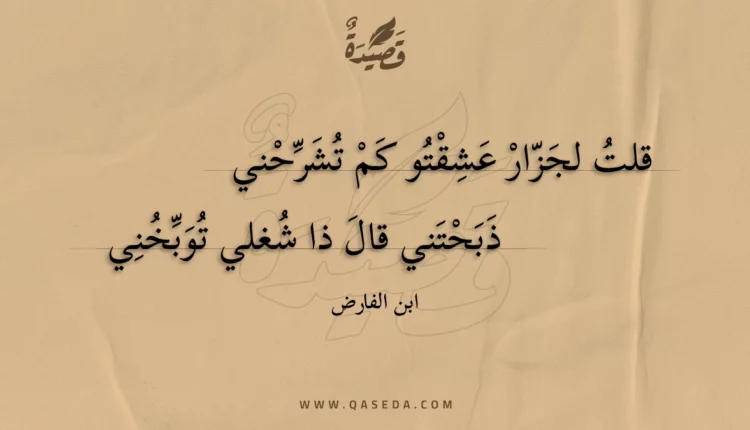 قَصِيدَةٌ
قلتُ لجَزّارْ عَشِقْتُو كَمْ تُشَرِّحْني
ذَبَحْتَني قالَ ذا شُغلي تُوَبِّخُنِي
ابن الفارض
WWW.QASEDA.COM